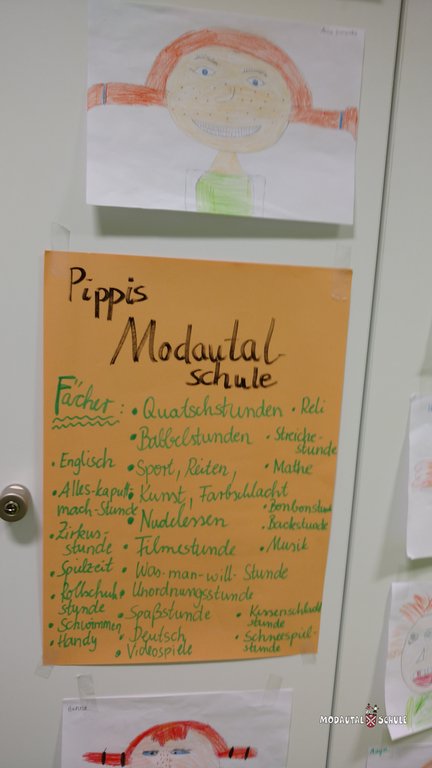 Pippis
Modautal-
schule
Fächer:
• Quatschstunden
• Reli
• Babbelstunden
• Streiche-
stunde
• Englisch
• Sport, Reiten,
• Mathe
• Alles-kaputt-
mach-Stunde
• Kunst, Farbschlacht
• Bonbonstunde
• Nudelessen
• Backstunde
• Zirkus-
stunde
• Filmestunde
• Musik
• Spielzeit
• Was-man-will-Stunde
• Rollschuh-
stunde
• Unordnungsstunde
• Schwimmen
• Spaßstunde
• Kissenschlacht
stunde
• Handy
• Deutsch
• Schneespiel-
stunde
• Videospiele
MODAUTAL SCHULE